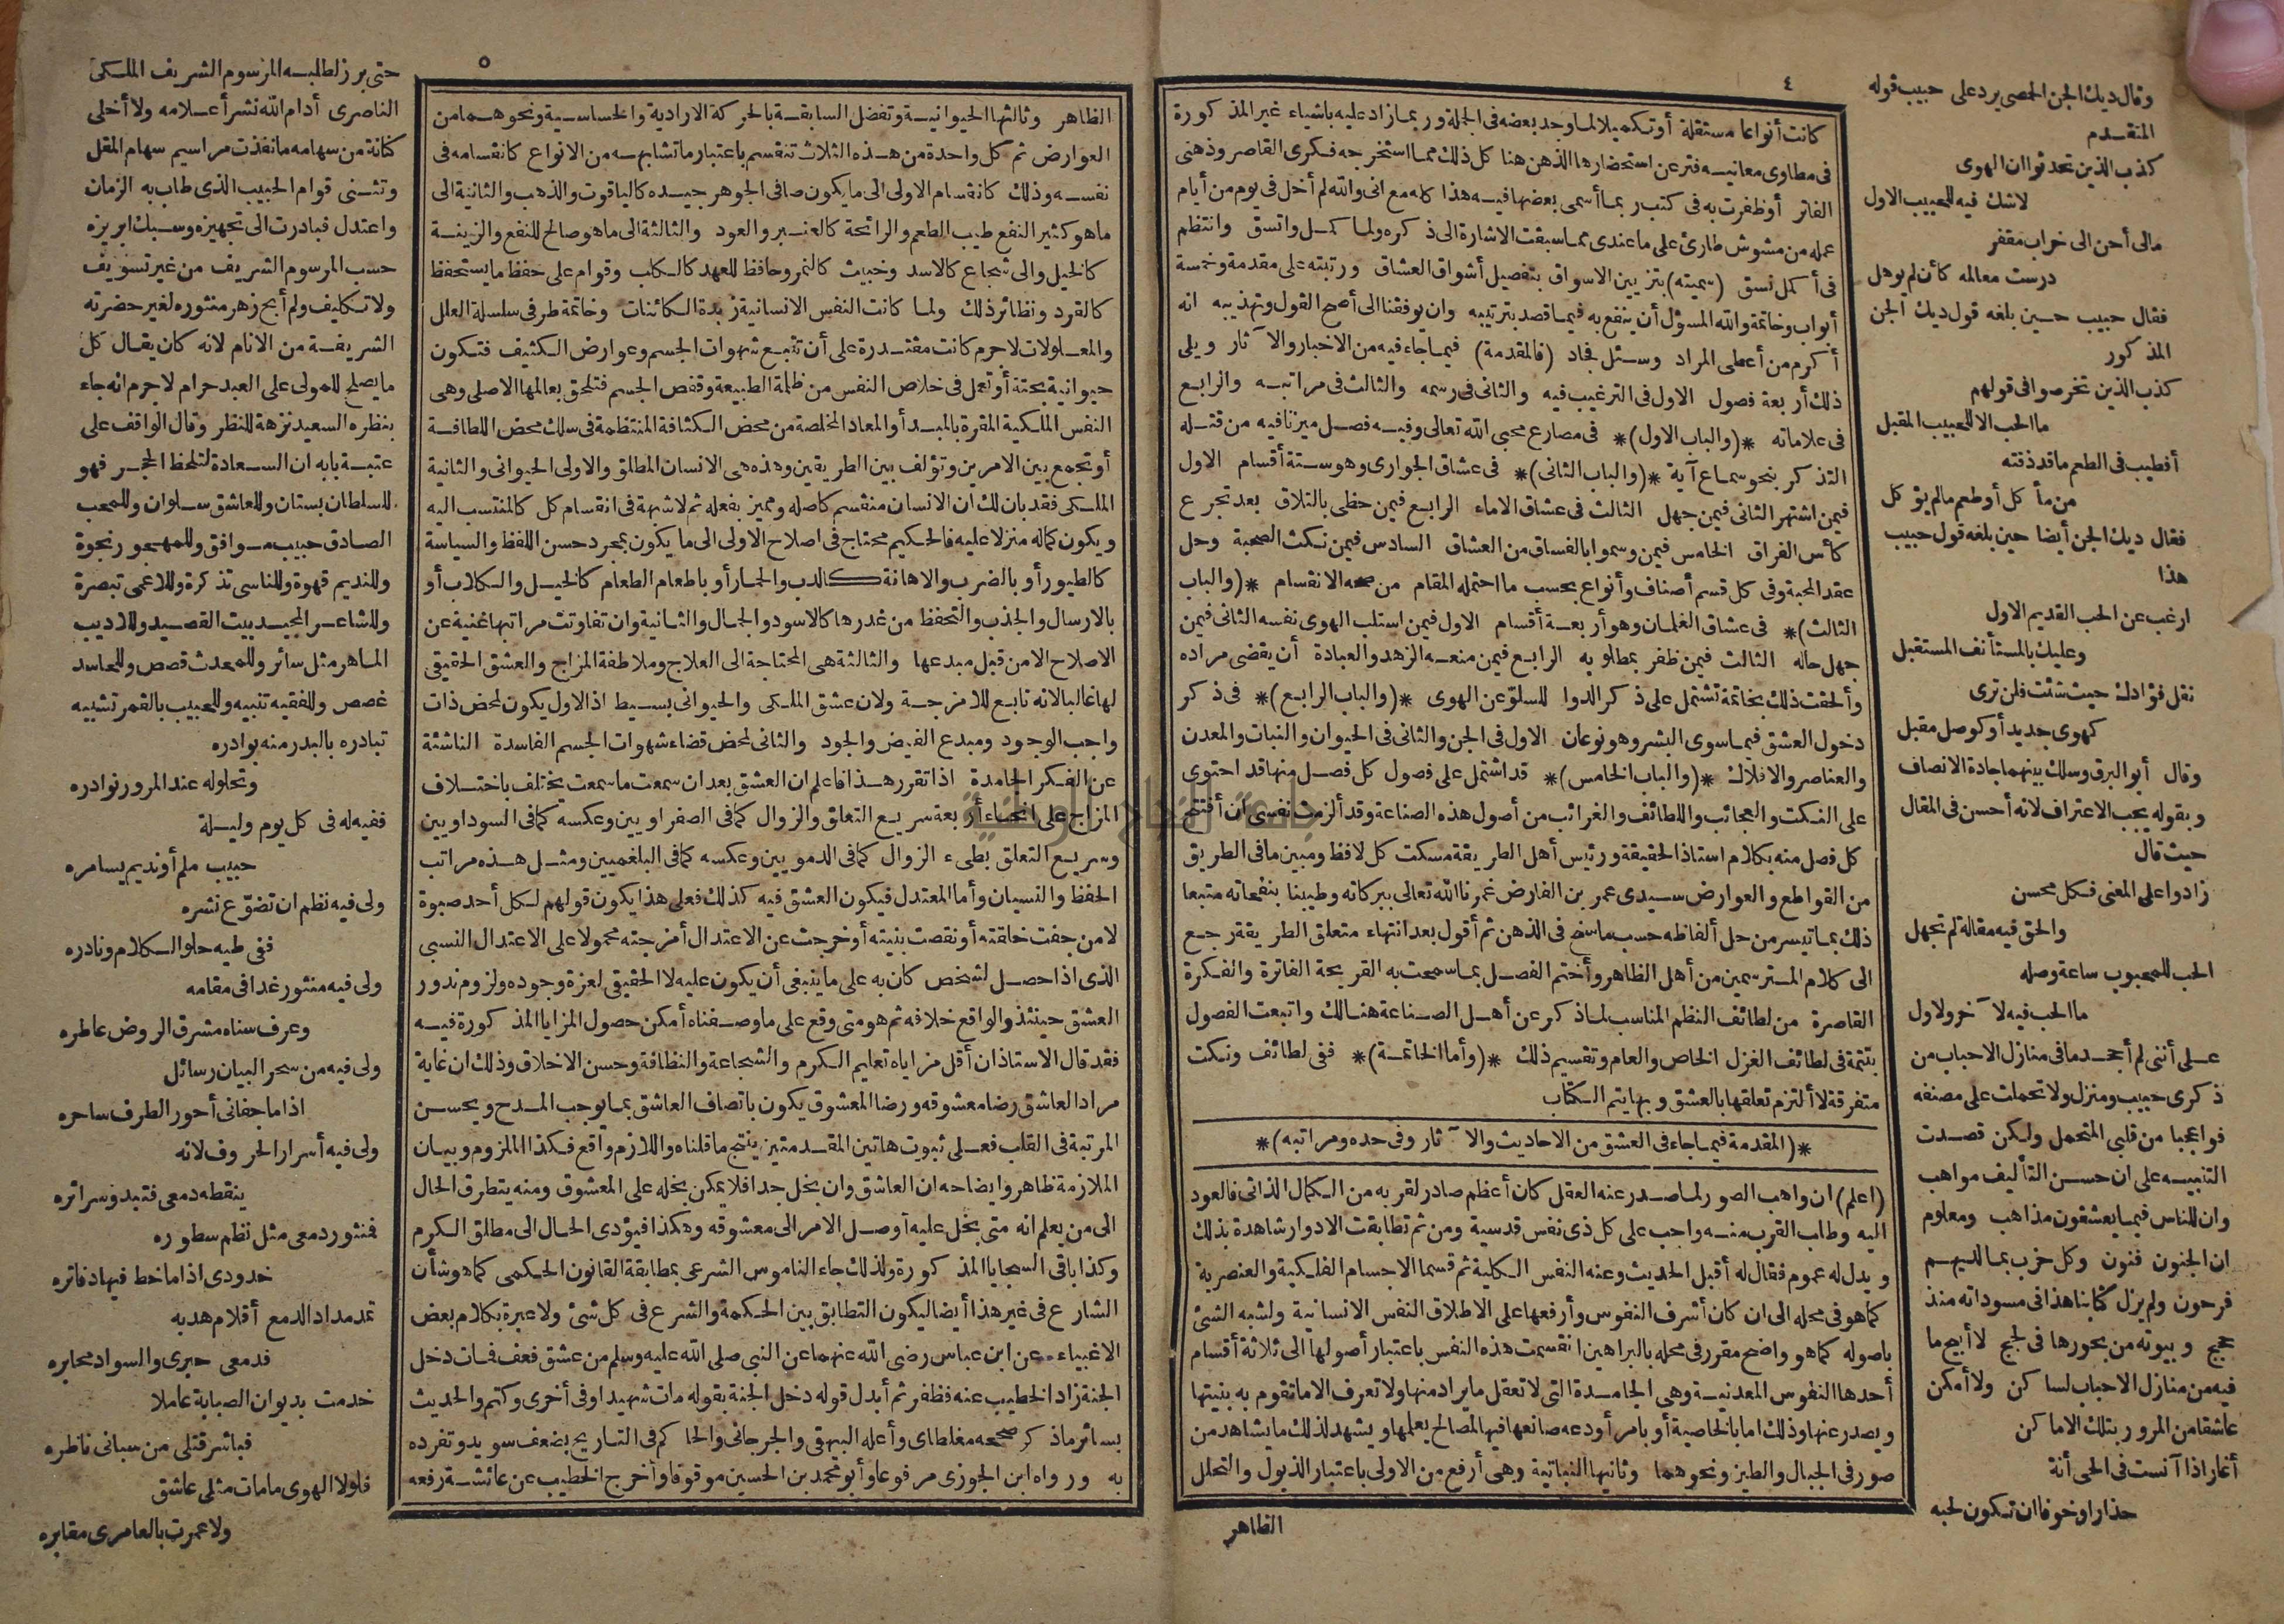 ٤
كانت أنواعا مستقلة أوتكميلا لما وجد بعضه فى الجملة وربما زاد عليه باشياء غير المذكورة
فى مطاوى معانيه فترعن استحضارها الذهن هنا كل ذلك مما استخرجه فكرى القاصر وذهنى
الفاتر أوظفرت به فى كتب ربما أسمى بعضها فيه هذا كله مع انى والله لم أخل فى يوم من أيام
عمله من مشوش طارئ على ما عندى مما سبقت الاشارة الى ذكره ولما كمل واتسق وانتظم
فى أكمل نسق (سميته) بتزيين الاسواق بتفصيل أشواق العشاق ورتبته على مقدمة وخمسة
أبواب وخاتمة والله المسؤل أن ينفع به فيما قصد بترتيبه وان يوفقنا الى أصح القول وتهذيبه انه
أكرم من أعطى المراد وسئل فجاد (فالمقدمة) فيما جاء فيه من الاخبار والآثار ويلى
ذلك أربعة فصول الاول فى الترغيب فيه والثانى فى رسمه والثالث فى مراتبه والرابع
فى علاماته *(والباب الاول)* فى مصارع محبى الله تعالى وفيه فصل ميزنا فيه من قتله
التذكر بنحو سماع آية *(والباب الثانى)* فى عشاق الجوارى وهو ستة أقسام الاول
فيمن اشتهر الثانى فيمن جهل الثالث فى عشاق الاماء الرابع فيمن حظى بالتلاق بعد تجرع
كأس الفراق الخامس فيمن وسموا بالفساق من العشاق السادس فيمن نكث الصحبة وحل
عقد المحبة وفى كل قسم أصناف وأنواع بحسب ما احتمله المقام من صحة الانقسام *(والباب
الثالث)* فى عشاق الغلمان وهو أربعة أقسام الاول فيمن استلب الهوى نفسه الثانى فيمن
جهل حاله الثالث فيمن ظفر بمطلوبه الرابع فيمن منعه الزهد والعبادة أن يقضى مراده
وألحقت ذلك بخاتمة تشتمل على ذكر الدوا للسلوّ عن الهوى *(والباب الرابع)* فى ذكر
دخول العشق فيما سوى البشر وهو نوعان الاول فى الجن والثانى فى الحيوان والنبات والمعدن
والعناصر والافلاك *(والباب الخامس)* قد اشتمل على فصول كل فصل منها قد احتوى
على النكت والعجائب واللطائف والغرائب من أصول هذه الصناعة وقد ألزمت نفسى أن أفتتح
كل فصل منه بكلام استاذ الحقيقة ورئيس أهل الطريقة مسكت كل لافظ ومبين ما فى الطريق
من القواطع والعوارض سيدى عمر بن الفارض غمرنا الله تعالى ببركاته وطيبنا بنفحاته متبعا
ذلك بما تيسر من حل ألفاظه حسب ما سنح فى الذهن ثم أقول بعد انتهاء متعلق الطريقة رجع
الى كلام المسترسمين من أهل الظاهر وأختم الفصل بما سمحت به القريحة الفاترة والفكرة
القاصرة من لطائف النظم المناسب لما ذكر عن أهل الصناعة هنالك واتبعت الفصول
بتتمة فى لطائف الغزل الخاص والعام وتقسيم ذلك *(وأما الخاتمة)* ففى لطائف ونكت
متفرقة لا ألتزم تعلقها بالعشق وبها يتم الكتاب
*(المقدمة فيما جاء فى العشق من الاحاديث والآثار وفى حده ومراتبه)*
(اعلم) ان واهب الصور لما صدر عنه العقل كان أعظم صادر لقربه من الكمال الذاتى فالعود
اليه وطلب القرب منه واجب على كل ذى نفس قدسية ومن ثم تطابقت الادوار شاهدة بذلك
ويدل له عموم فقال له أقبل الحديث وعنه النفس الكلية ثم قسما الاجسام الفلكية والعنصرية
كما هو فى محله الى ان كان أشرف النفوس وأرفعها على الاطلاق النفس الانسانية ولشبه الشئ
باصوله كما هو واضح مقرر فى محله بالبراهين انقسمت هذه النفس باعتبار أصولها الى ثلاثة أقسام
أحدها النفوس المعدنية وهى الجامدة التى لا تعقل ما يراد منها ولا تعرف الا ما تقوم به بنيتها
ويصدر عنها وذلك اما بالخاصية أو بامر أودعه صانعها فيها لمصالح يعلمها ويشهد لذلك ما يشاهد من
صور فى الجبال والطين ونحوهما وثانيها النباتية وهى أرفع من الاولى باعتبار الذبول والتحلل
الظاهر
وقال ديك الجن الحمصى يرد على حبيب قوله
المتقدم
كذب الذين تحدثوا ان الهوى
لاشك فيه للحبيب الاول
مالى أحن الى خراب مقفر
درست معالمه كأن لم يوهل
فقال حبيب حين بلغه قول ديك الجن
المذكور
كذب الذين تخرصوا فى قولهم
ما الحب الا للحبيب المقبل
أفطيب فى الطعم ما قد ذقته
من مأكل أو طعم مالم يؤكل
فقال ديك الجن أيضا حين بلغه قول حبيب
هذا
ارغب عن الحب القديم الاول
وعليك بالمستأنف المستقبل
نقل فؤادك حيث شئت فلن ترى
كهوى جديد أو كوصل مقبل
وقال أبو البرق وسلك بينهما جادة الانصاف
وبقوله يجب الاعتراف لانه أحسن فى المقال
حيث قال
زادوا على المعنى فكل محسن
والحق فيه مقالة لم تجهل
الحب للمحبوب ساعة وصله
ما الحب فيه لآخر ولاول
على أننى لم أجحد ما فى منازل الاحباب من
ذكرى حبيب ومنزل ولا تحملت على مصنفه
فواعجبا من قلبى المتحمل ولكن قصدت
التنبيه على ان حسن التأليف مواهب
وان للناس فيما يعشقون مذاهب ومعلوم
ان الجنون فنون وكل حزب بما لديهم
فرحون ولم يزل كتابنا هذا فى مسوداته منذ
حجج وبيوته من بحورها فى لجج لا أبيح ما
فيه من منازل الاحباب لساكن ولا أمكن
عاشقا من المرور بتلك الاماكن
أغار اذا آنست فى الحى أنة
حذارا وخوفا ان تكون لحبه
٥
الظاهر وثالثها الحيوانية وتفضل السابقة بالحركة الارادية والحساسية ونحوهما من
العوارض ثم كل واحدة من هذه الثلاث تنقسم باعتبار ما تشابهه من الانواع كانقسامه فى
نفسه وذلك كانقسام الاولى الى ما يكون صافى الجوهر جيده كالياقوت والذهب والثانية الى
ما هو كثير النفع طيب الطعم والرائحة كالعنبر والعود والثالثة الى ما هو صالح للنفع والزينة
كالخيل والى شجاع كالاسد وخبيث كالنمر وحافظ للعهد كالكلب وقوام على حفظ ما يستحفظ
كالقرد ونظائر ذلك ولما كانت النفس الانسانية زبدة الكائنات وخاتمة طرفى سلسلة العلل
والمعلولات لاجرم كانت مقتدرة على أن تتبع شهوات الجسم وعوارض الكثيف فتكون
حيوانية بحتة أو تعمل فى خلاص النفس من ظلمة الطبيعة وقفص الجسم فتلحق بعالمها الاصلى وهى
النفس الملكية المقرة بالمبدأ والمعاد المخلصة من محض الكثافة المنتظمة فى سلك محض اللطافة
أو تجمع بين الامرين وتؤلف بين الطريقين وهذه هى الانسان المطلق والاولى الحيوانى والثانية
الملكى فقد بان لك ان الانسان منقسم كاصله ومميز بفعله ثم لا شبهة فى انقسام كل كالمنتسب اليه
ويكون كماله منزلا عليه فالحكيم محتاج فى اصلاح الاولى الى ما يكون بمجرد حسن اللفظ والسياسة
كالطيور أو بالضرب والاهانة كالدب والحمار أو باطعام الطعام كالخيل والكلاب أو
بالارسال والجذب والتحفظ من غدرها كالاسود والجمال والثانية وان تفاوتت مراتبها غنية عن
الاصلاح الا من قبل مبدعها والثالثة هى المحتاجة الى العلاج وملاطفة المزاج والعشق الحقيقى
لها غالبا لانه تابع للامزجة ولان عشق الملكى والحيوانى بسيط اذ الاول يكون لمحض ذات
واجب الوجود ومبدع الفيض والجود والثانى لمحض قضاء شهوات الجسم الفاسدة الناشئة
عن الفكر الجامدة اذا تقرر هذا فاعلم ان العشق بعد ان سمعت ما سمعت يختلف باختلاف
المزاج على انحاء أربعة سريع التعلق والزوال كما فى الصفراويين وعكسه كما فى السوداويين
وسريع التعلق بطىء الزوال كما فى الدمويين وعكسه كما فى البلغميين ومثل هذه مراتب
الحفظ والنسيان وأما المعتدل فيكون العشق فيه كذلك فعلى هذا يكون قولهم لكل أحد صبوة
لا من جفت خلقته أو نقصت بنيته أو خرجت عن الاعتدال أمزجته محمولا على الاعتدال النسبى
الذى اذا حصل لشخص كان به على ما ينبغى أن يكون عليه لا الحقيقى لعزة وجوده ولزوم ندور
العشق حينئذ والواقع خلافه ثم هو متى وقع على ما وصفناه أمكن حصول المزايا المذكورة فيه
فقد قال الاستاذ ان أقل مزاياه تعليم الكرم والشجاعة والنظافة وحسن الاخلاق وذلك ان غاية
مراد العاشق رضا معشوقه ورضا المعشوق يكون باتصاف العاشق بما يوجب المدح ويحسن
المرتبة فى القلب فعلى ثبوت هاتين المقدمتين ينتج ما قلناه واللازم واقع فكذا الملزوم وبيان
الملازمة ظاهر وايضاحه ان العاشق وان بخل جدا فلا يمكن بخله على المعشوق ومنه يتطرق الحال
الى من يعلم انه متى بخل عليه أوصل الامر الى معشوقه وهكذا فيؤدى الحال الى مطلق الكرم
وكذا باقى السجايا المذكورة ولذلك جاء الناموس الشرعى بمطابقة القانون الحكمى كما هو شأن
الشارع فى غير هذا أيضا ليكون التطابق بين الحكمة والشرع فى كل شئ ولا عبرة بكلام بعض
الاغبياء عن ابن عباس رضى الله عنهما عن النبى صلى الله عليه وسلم من عشق فعف فمات دخل
الجنة زاد الخطيب عنه فظفر ثم أبدل قوله دخل الجنة بقوله مات شهيدا وفى أخرى وكتم والحديث
بسائر ما ذكر صححه مغلطاى وأعله البيهقى والجرجانى والحاكم فى التاريخ بضعف سويد وتفرده
به ورواه ابن الجوزى مرفوعا وأبو محمد بن الحسين موقوفا وأخرج الخطيب عن عائشة رفعه
حتى برز لطلبه المرسوم الشريف الملكى
الناصرى أدام الله نشر أعلامه ولا أخلى
كنانة من سهامه ما نفذت مراسيم سهام المقل
وتثنى قوام الحبيب الذى طاب به الزمان
واعتدل فبادرت الى تجهيزه وسبك ابريزه
حسب المرسوم الشريف من غير تسويف
ولا تكليف ولم أبح زهر منثوره لغير حضرته
الشريفة من الانام لانه كان يقال كل
ما يصلح للمولى على العبد حرام لاجرم انه جاء
بنظره السعيد نزهة للنظر وقال الواقف على
عتبة بابه ان السعادة لتلحظ الحجر فهو
للسلطان بستان وللعاشق سلوان وللمحب
الصادق حبيب موافق وللمهجور نجوة
وللنديم قهوة وللناسى تذكرة وللاعمى تبصرة
وللشاعر المجيد بيت القصيد وللاديب
الماهر مثل سائر وللمحدث قصص وللحاسد
غصص وللفقيه تنبيه وللحبيب بالقمر تشبيه
تبادره بالبدر منه بوادره
وتحلوله عند المرور نوادره
ففيه له فى كل يوم وليلة
حبيب ملم أو نديم يسامره
ولى فيه نظم ان تضوّع نشره
ففى طيه حلو الكلام ونادره
ولى فيه منثور غدا فى مقامه
وعرف سناه مشرق الروض عاطره
ولى فيه من سحر البيان رسائل
اذا ما جفانى أحور الطرف ساحره
ولى فيه أسرار الحروف لانه
ينقطه دمعى فتبدو سرائره
فمنثور دمعى مثل نظم سطوره
خدودى اذا ما خط فيها دفاتره
تمد مداد الدمع أقلام هدبه
فدمعى حبرى والسواد محابره
خدمت بديوان الصبابة عاملا
فباشر قتلى من سبانى ناظره
فلولا الهوى ما مات مثلى عاشق
ولا عمرت بالعامرى مقابره